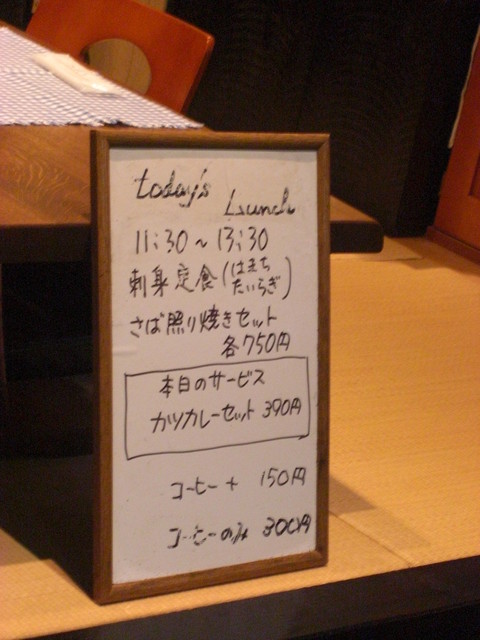 today's
Lunch
11:30~13:30
刺身定食(はまち
たいらぎ)
さば照り焼きセット
各750円
本日のサービス
カツカレーセット 390円
コーヒー+ 150円
コーヒーのみ 300円